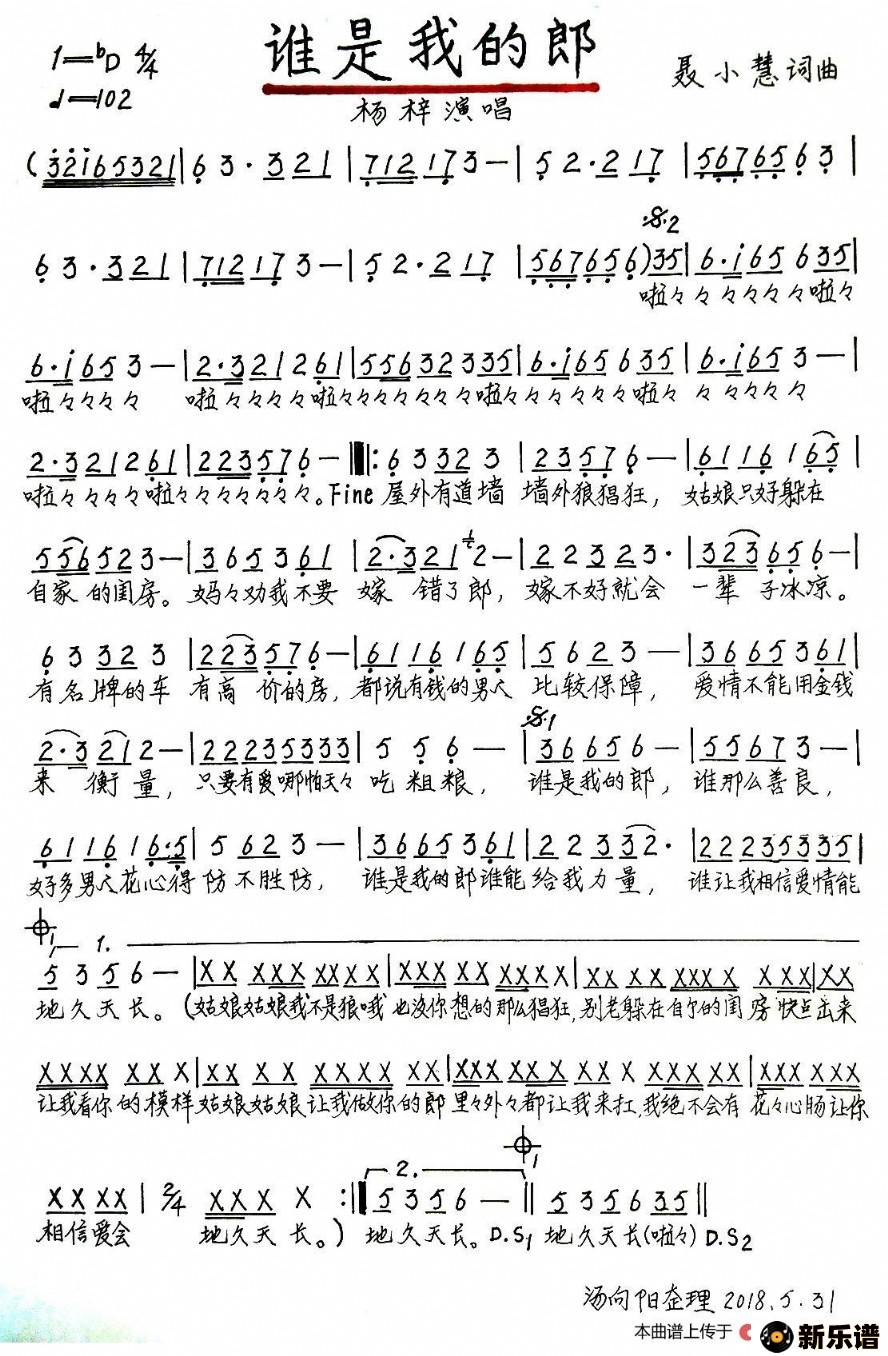 谁是我的郎
1=ᵇD 4/4
聂小慧词曲
♩=102
杨梓演唱
(3̇2̇1̇65321|63·321|712173—|52·217|5676563|
63·321|712173—|52·217|567656)35|6·i65635|
啦々々々々々々啦々
6·i653—|2·321261|55632335|6·i65635|6·i653—|
啦々々々々 啦々々々々啦々々々々々々々啦々々々々々々啦々 々々々々々
2·321261|223576—|‖:63323|23576—|6116165|
啦々々々々啦々々々々々々々。Fine 屋外有道墙 墙外狼猖狂， 姑娘只好躲在
556523—|365361|2·3212—|22323·|323656—|
自家的闺房。妈々劝我不要 嫁 错了郎，嫁不好就会 一辈 子冰凉。
63323|223576—|6116165|5623—|3665361|
有名牌的车 有高 价的房，都说有钱的男人 比较保障， 爱情不能用金钱
2·3212—|22235333|556—|36656—|55673—|
来 衡量，只要有爱哪怕天々 吃粗粮， 谁是我的郎，谁那么善良，
611616·5|5623—|3665361|22332·|22235335|
好多男人花心得 防不胜防， 谁是我的郎谁能 给我力量， 谁让我相信爱情能
1.
5356—|XX XXX XXXX|XXX XX XXXX|XX XX XXX XXX|XX
地久天长。(姑娘姑娘我不是狼哦 也没你想的那么猖狂，别老躲在自家的闺房 快点出来
XXXX XX X|XX XX XXXX XX|XXX XXX XX X XXX XX|XXX XXX
让我看你的模样 姑娘姑娘 让我做你的郎 里々外々都让我来扛，我绝不会有 花々心肠让你
2.
XX XX|2/4 XXX X X:‖5356—‖535635‖
相信爱会 地久天长。) 地久天长。D.S1 地久天长(啦々) D.S2
汤向阳整理 2018.5.31
本曲谱上传于 新乐谱